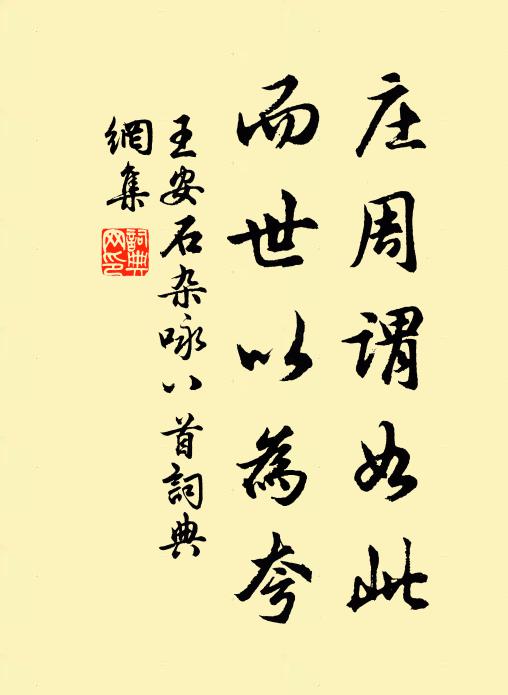 庄周谓如此
而世以為夸
王安石杂咏八首詞典
網集
詞典
网印